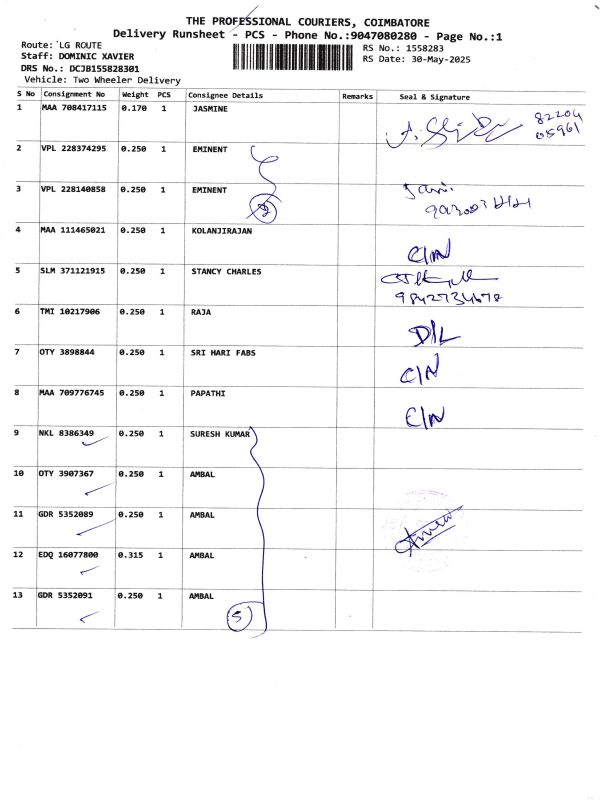 THE PROFESSIONAL COURIERS, COIMBATORE
Delivery Runsheet - PCS - Phone No.:9047080280 - Page No.:1
Route: LG ROUTE
Staff: DOMINIC XAVIER
DRS No.: DCJB155828301
Vehicle: Two Wheeler Delivery
RS No.: 1558283
RS Date: 30-May-2025
S No Consignment No Weight PCS Consignee Details Remarks Seal & Signature
1 MAA 708417115 0.170 1 JASMINE
82204
05961
2 VPL 228374295 0.250 1 EMINENT
3 VPL 228140858 0.250 1 EMINENT
2
4 MAA 111465021 0.250 1 KOLANJIRAJAN C/N
5 SLM 371121915 0.250 1 STANCY CHARLES
9842734678
6 TMI 10217906 0.250 1 RAJA D/L
7 OTY 3898844 0.250 1 SRI HARI FABS C/N
8 MAA 709776745 0.250 1 PAPATHI C/N
9 NKL 8386349 0.250 1 SURESH KUMAR
10 OTY 3907367 0.250 1 AMBAL
11 GDR 5352089 0.250 1 AMBAL
12 EDQ 16077800 0.315 1 AMBAL
13 GDR 5352091 0.250 1 AMBAL
5